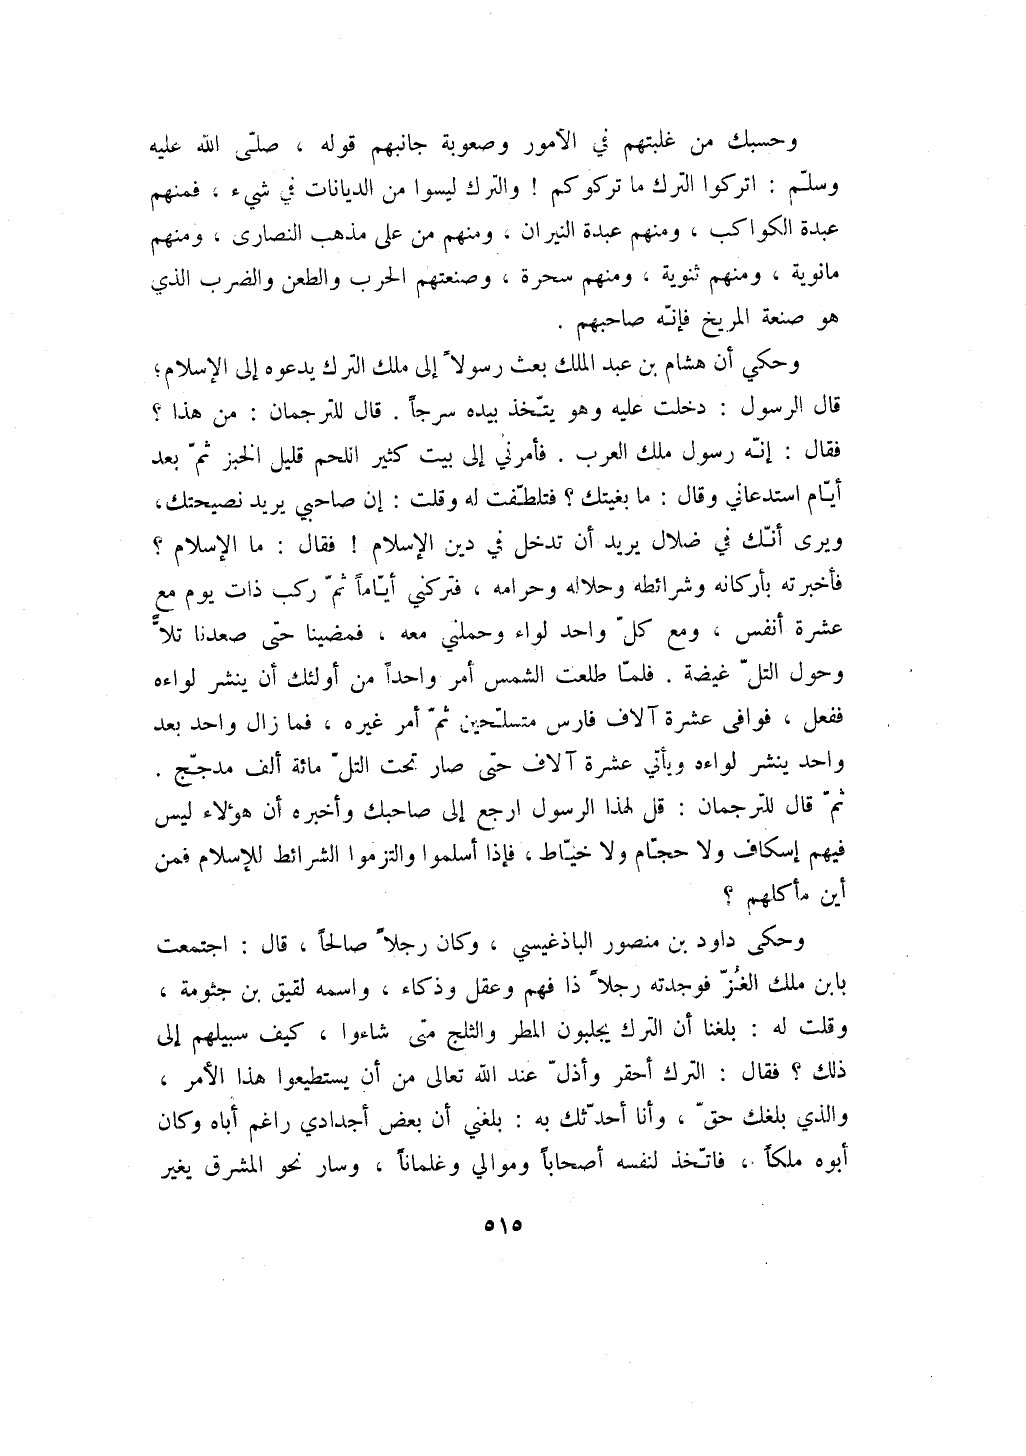 وحسبك من غلبتهم في الأمور وصعوبة جانبهم قوله ، صلّى الله عليه
وسلّم : اتركوا الترك ما تركوكم ! والترك ليسوا من الديانات في شيء ، فمنهم
عبدة الكواكب ، ومنهم عبدة النيران ، ومنهم من على مذهب النصارى ، ومنهم
مانوية ، ومنهم ثنوية ، ومنهم سحرة ، وصنعتهم الحرب والطعن والضرب الذي
هو صنعة المريخ فإنّه صاحبهم .
وحكي أن هشام بن عبد الملك بعث رسولاً إلى ملك الترك يدعوه إلى الإسلام؛
قال الرسول : دخلت عليه وهو يتّخذ بيده سرجاً . قال للترجمان : من هذا ؟
فقال : إنّه رسول ملك العرب . فأمرني إلى بيت كثير اللحم قليل الخبز ثمّ بعد
أيّام استدعاني وقال : ما بغيتك ؟ فتلطّفت له وقلت : إن صاحبي يريد نصيحتك،
ويرى أنّك في ضلال يريد أن تدخل في دين الإسلام ! فقال : ما الإسلام ؟
فأخبرته بأركانه وشرائطه وحلاله وحرامه ، فتركني أيّاماً ثمّ ركب ذات يوم مع
عشرة أنفس ، ومع كلّ واحد لواء وحملني معه ، فمضينا حتّى صعدنا تلاًّ
وحول التلّ غيضة . فلمّا طلعت الشمس أمر واحداً من أولئك أن ينشر لواءه
ففعل ، فوافى عشرة آلاف فارس متسلّحين ثمّ أمر غيره ، فما زال واحد بعد
واحد ينشر لواءه ويأتي عشرة آلاف حتّى صار تحت التلّ مائة ألف مدجّج .
ثمّ قال للترجمان : قل لهذا الرسول ارجع إلى صاحبك وأخبره أن هؤلاء ليس
فيهم إسكاف ولا حجّام ولا خيّاط ، فإذا أسلموا والتزموا الشرائط للإسلام فمن
أين مأكلهم ؟
وحكى داود بن منصور الباذغيسي ، وكان رجلاً صالحاً ، قال : اجتمعت
بابن ملك الغُزّ فوجدته رجلاً ذا فهم وعقل وذكاء ، واسمه لقيق بن جثومة ،
وقلت له : بلغنا أن الترك يجلبون المطر والثلج متى شاءوا ، كيف سبيلهم إلى
ذلك ؟ فقال : الترك أحقر وأذلّ عند الله تعالى من أن يستطيعوا هذا الأمر ،
والذي بلغك حقّ ، وأنا أحدّثك به : بلغني أن بعض أجدادي راغم أباه وكان
أبوه ملكاً ، فاتّخذ لنفسه أصحاباً وموالي وغلماناً ، وسار نحو المشرق يغير
٥١٥